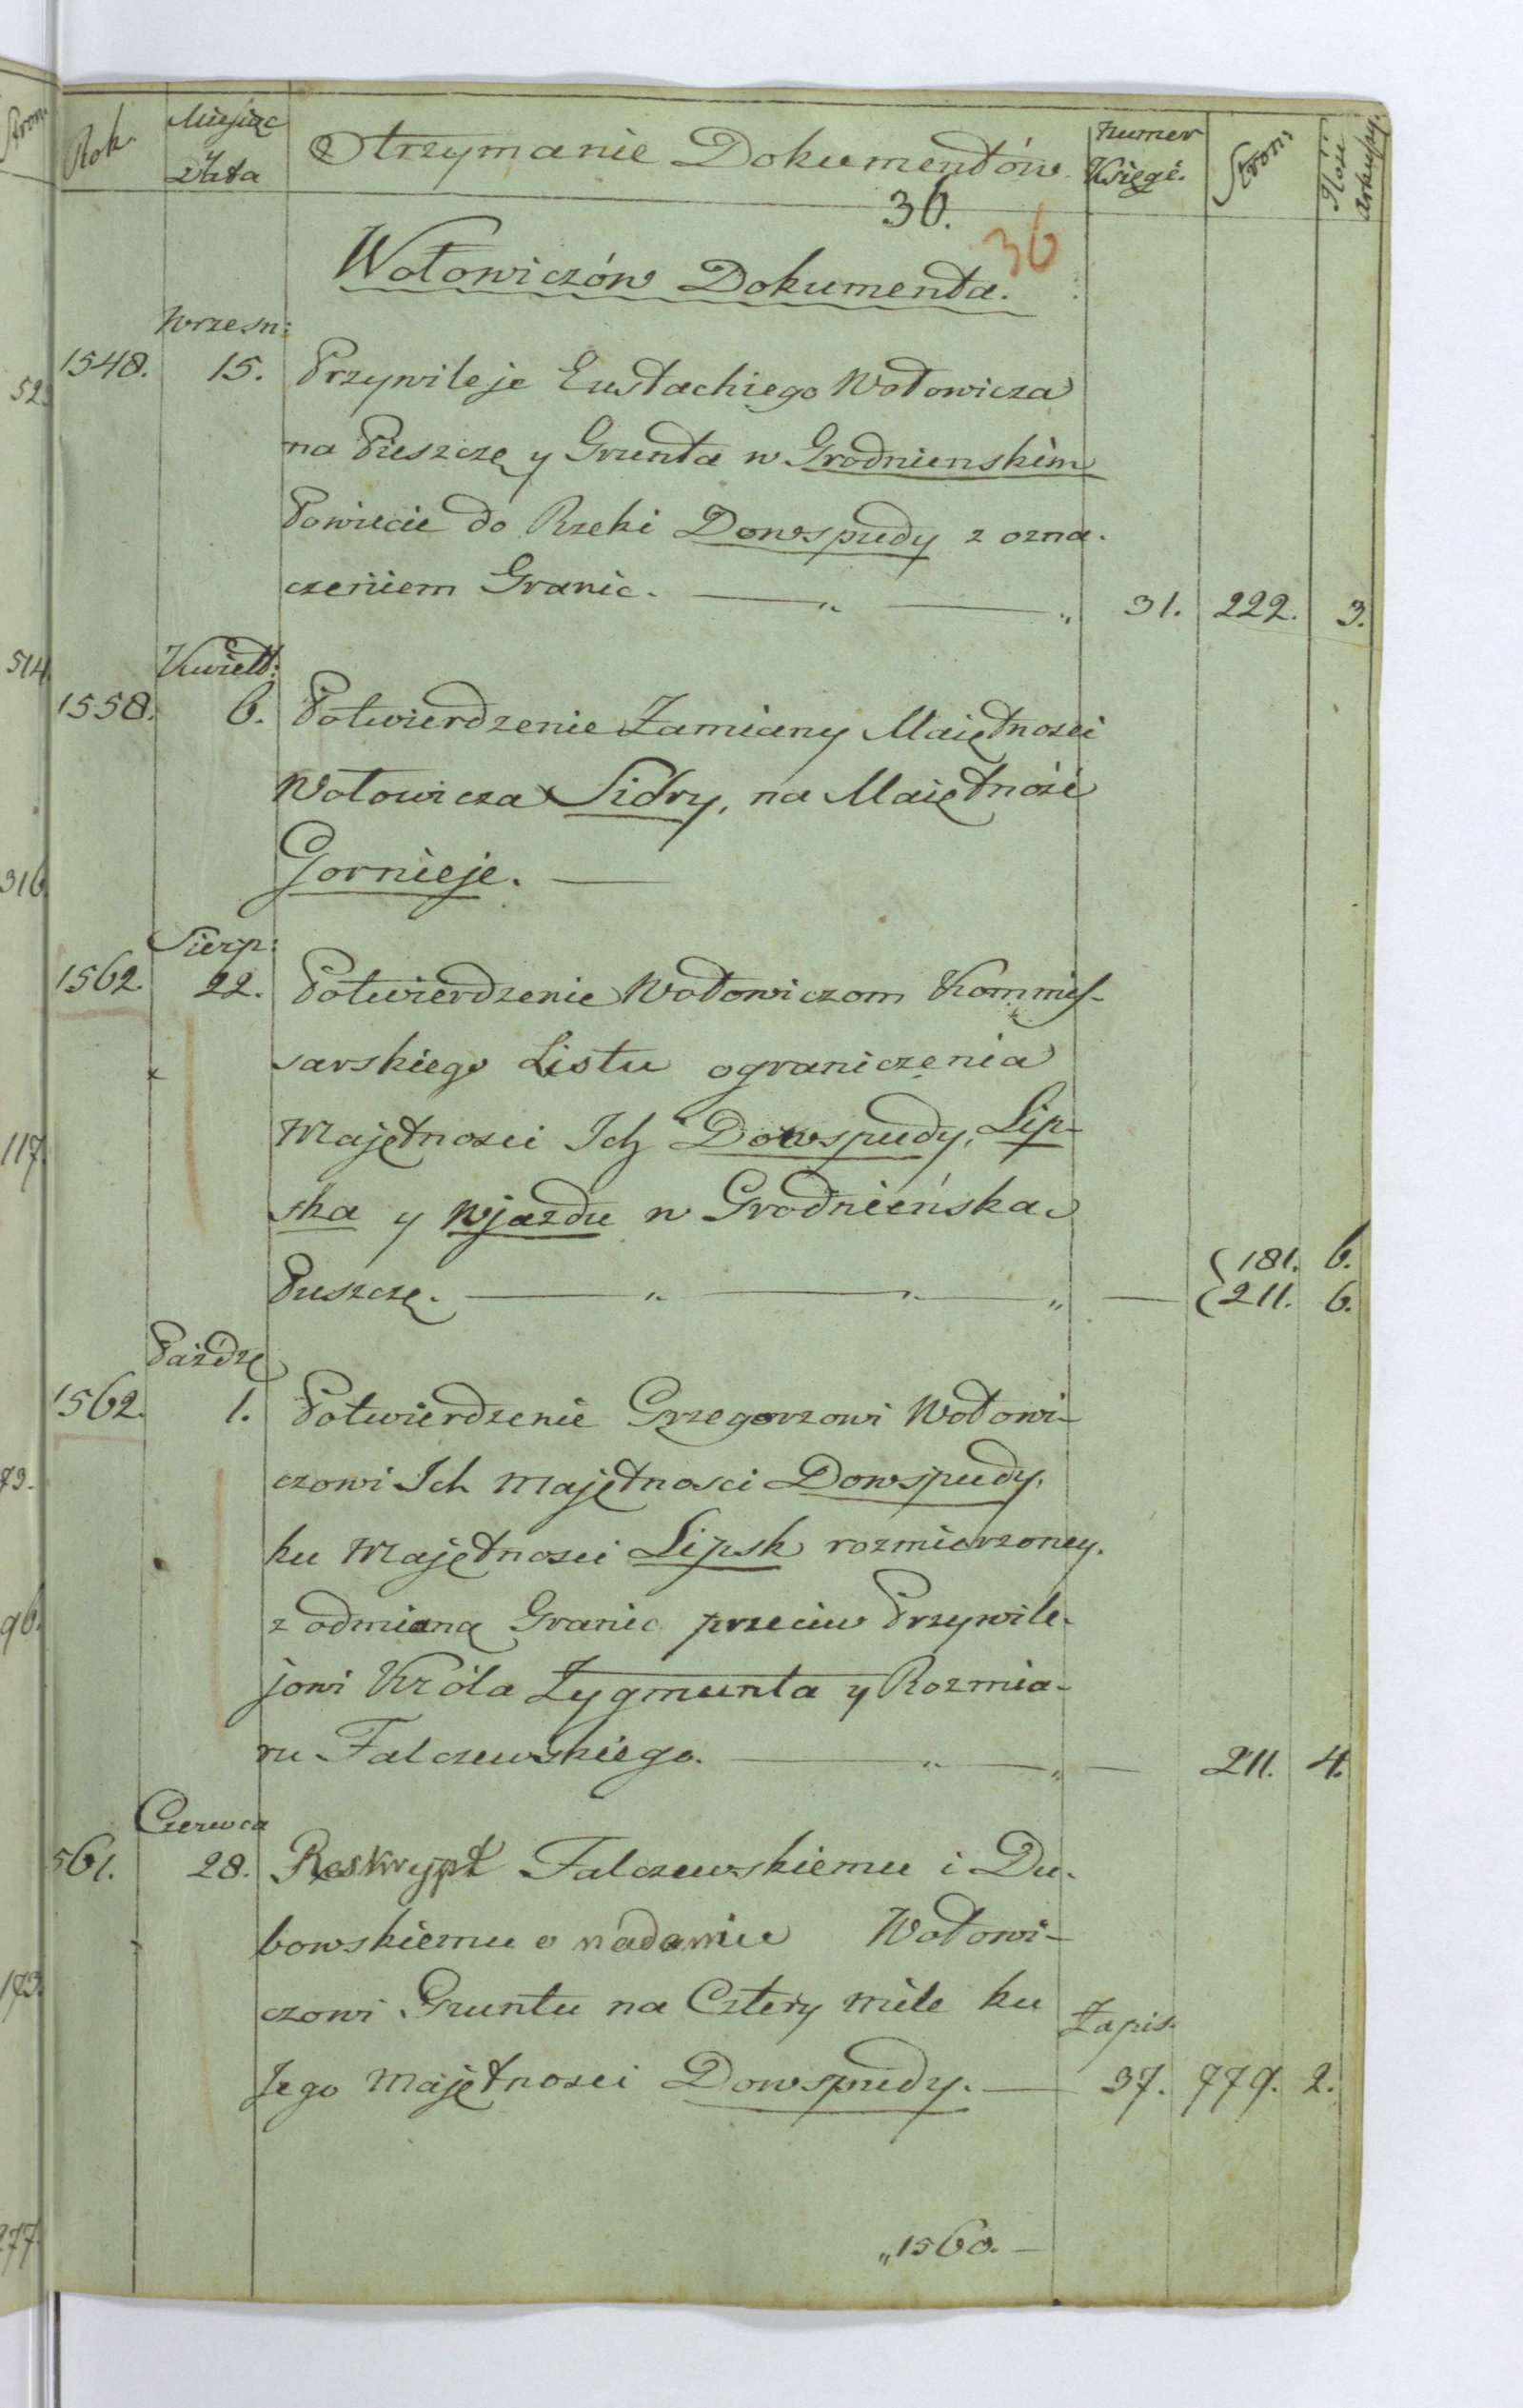 Rok. Miesiąc Data Otrzymanie Dokumentów. Numer Księgi. Stron: Ilość arkuszy.
36.
36
Wołowiczów Dokumenta.
Wrzesn:
1548. 15. Przywileje Eustachiego Wołowicza
na Puszczę y Grunta w Grodnienskim
Powiecie do Rzeki Dowspudy z ozna-
czeniem Granic. — „ — „ 31. 222. 3.
Kwiet:
1558. 6. Potwierdzenie Zamiany Maiętnosci
Wołowicza Sidry, na Maiętność
Gornieje. —
Sierp:
1562. 22. Potwierdzenie Wołowiczom Kommis-
sarskiego Listu ograniczenia
Majętnosci Ich Dowspudy, Lip-
ska y Wjazdu w Grodnieńska
181. 6.
Puszczę. — „ — „ — „ — 211. 6.
Paździe
1562. 1. Potwierdzenie Grzegorzowi Wołowi-
czowi Ich Majętnosci Dowspudy,
ku Majętnosci Lipsk rozmierzoney.
z odmianą Granic przeciw Przywile-
jowi Króla Zygmunta y Rozmia-
ru Falczewskiego. — „ — „ — 211. 4.
Czerwca
561. 28. Reskrypt Falczewskiemu i Du-
bowskiemu o nadaniu Wołowi-
czowi Gruntu na Cztery mile ku
Zapis.
Jego Majętnosci Dowspudy. — 37. 779. 2.
„1560. —
52
514
316
117.
73.
96.
173
277